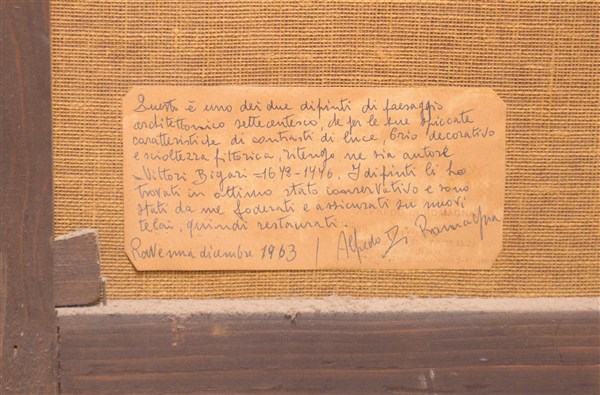 Questo è uno dei due dipinti di paesaggio
architettonico settecentesco, che per le sue spiccate
caratteristiche di contrasti di luce, brio decorativo
e scioltezza pittorica, ritengo ne sia autore
Vittorio Bigari - 1648 - 1446. I dipinti li ho
trovati in ottimo stato conservativo e sono
stati da me foderati e assicurati su nuovi
telai, quindi restaurati.
Ravenna dicembre 1963 / Alfredo